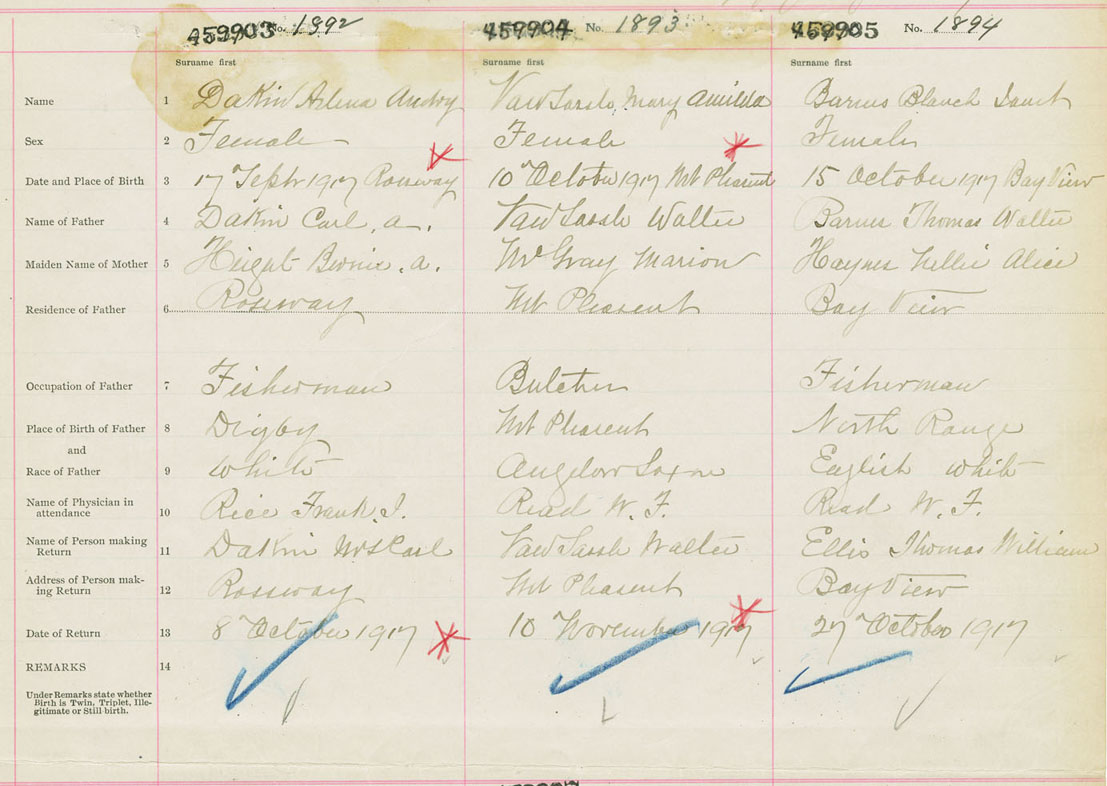 459903 No. 1892 459904 No. 1893 459905 No. 1894
Surname first Surname first Surname first
Name 1 Dakin Audry Mary Amilda Barnes Blanch
Sex 2 Female Female Female
Date and Place of Birth 3 17 Sept 1917 Rossway 10 October 1917 Mt Pleasent 15 October 1917 Bay View
Name of Father 4 Dakin Carl, a. Walter Barnes Thomas Walter
Maiden Name of Mother 5 Haight a. McGray Marion Haynes Nellie Alice
Residence of Father 6 Rossway Mt Pleasent Bay View
Occupation of Father 7 Fisherman Butcher Fisherman
Place of Birth of Father 8 Digby Mt Pleasent North Range
and
Race of Father 9 White English White
Name of Physician in
attendance 10 Rice Frank. Read W. F. Read W. F.
Name of Person making
Return 11 Dakin Mrs Carl Walter Ellis Thomas William
Address of Person mak-
ing Return 12 Rossway Mt Pleasent Bay View
Date of Return 13 8 October 1917 10 November 1917 27 October 1917
REMARKS 14
Under Remarks state whether
Birth is Twin, Triplet, Ille-
gitimate or Still-birth.